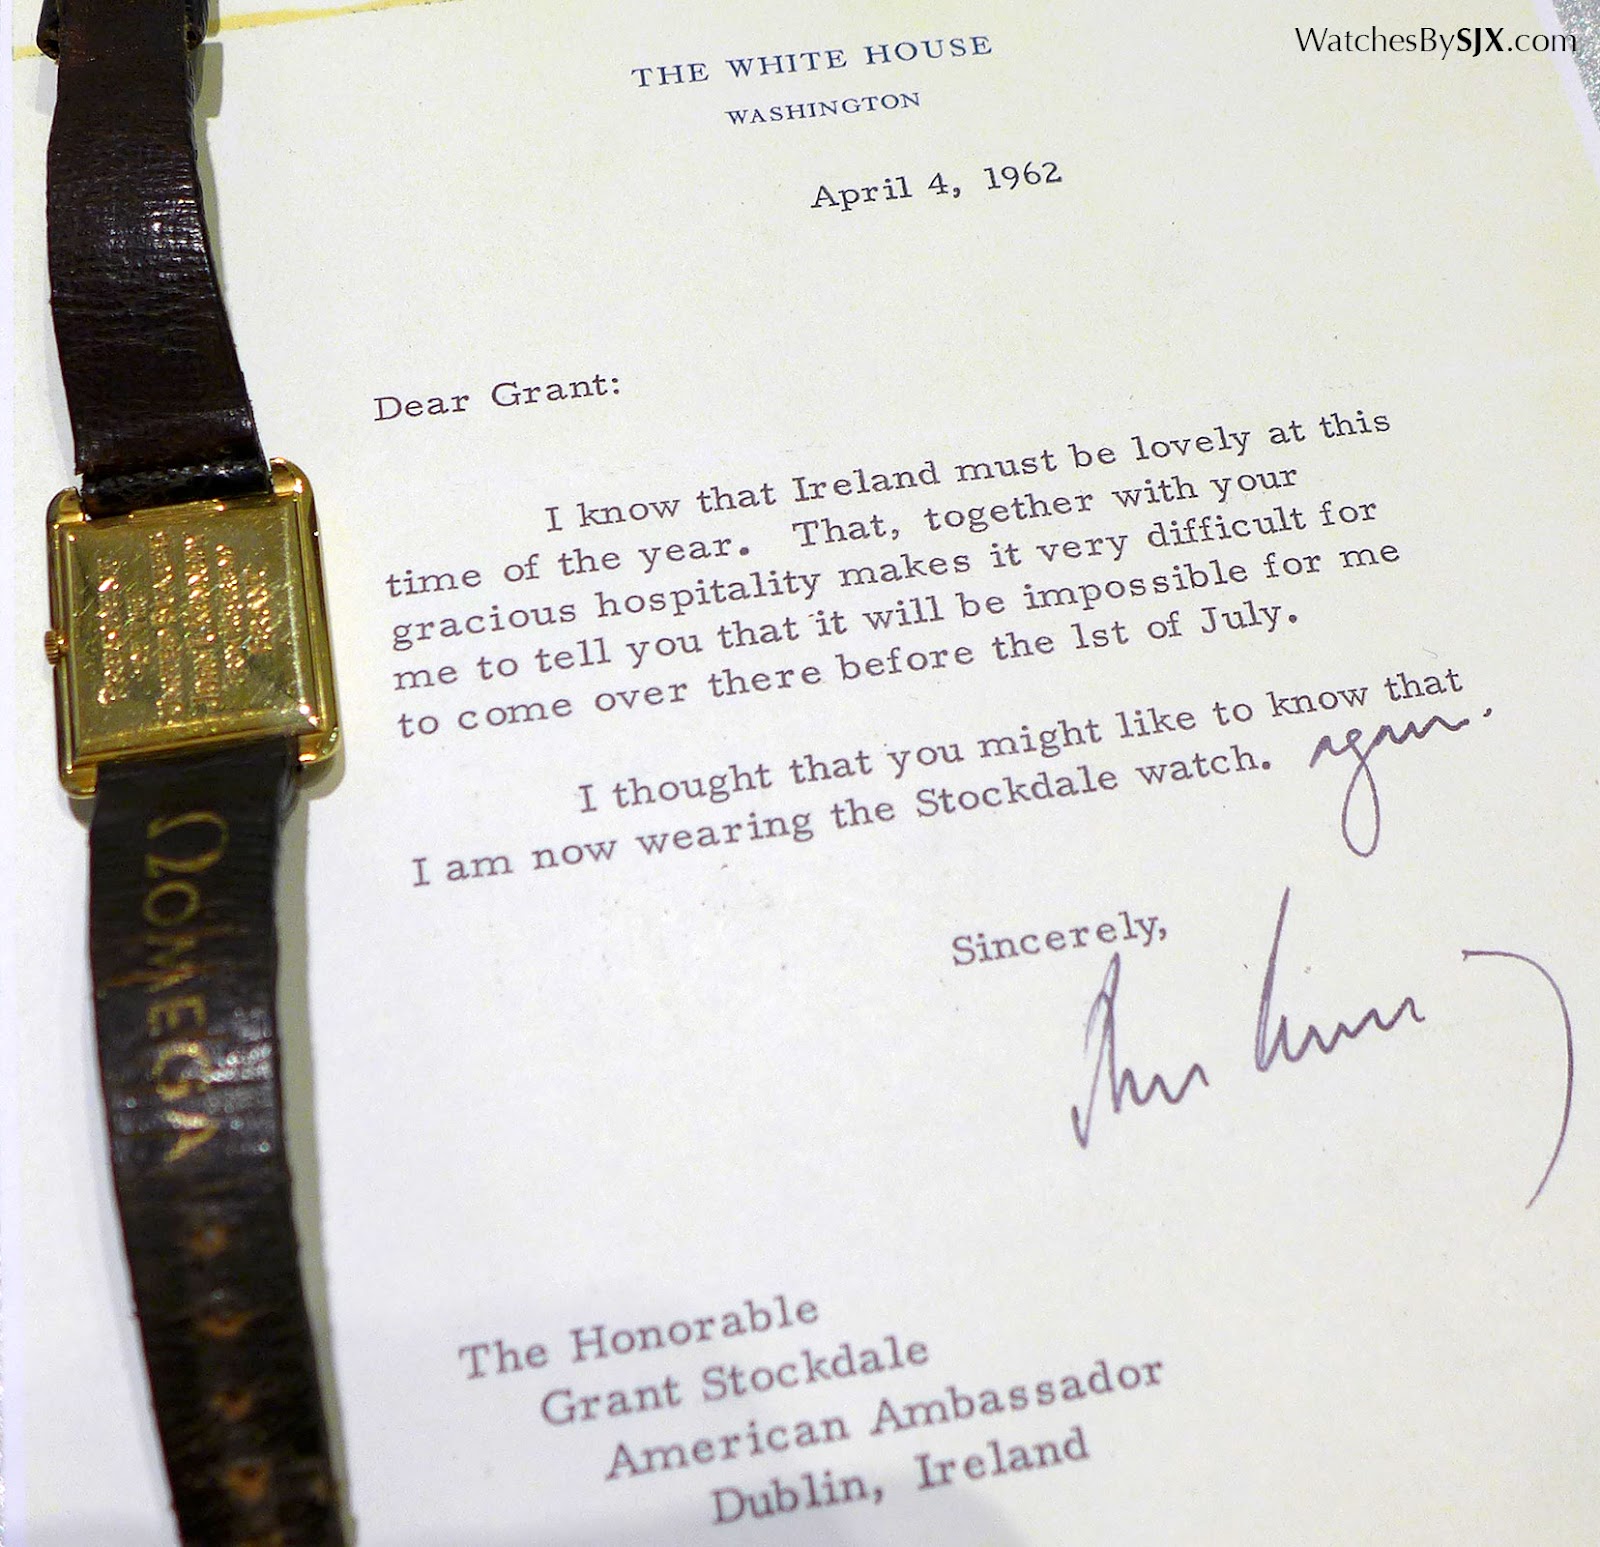 WatchesBySJX.com
THE WHITE HOUSE
WASHINGTON
April 4, 1962
Dear Grant:
I know that Ireland must be lovely at this
time of the year. That, together with your
gracious hospitality makes it very difficult for
me to tell you that it will be impossible for me
to come over there before the 1st of July.
I thought that you might like to know that
I am now wearing the Stockdale watch. again.
Sincerely,
The Honorable
Grant Stockdale
American Ambassador
Dublin, Ireland
Ω OMEGA